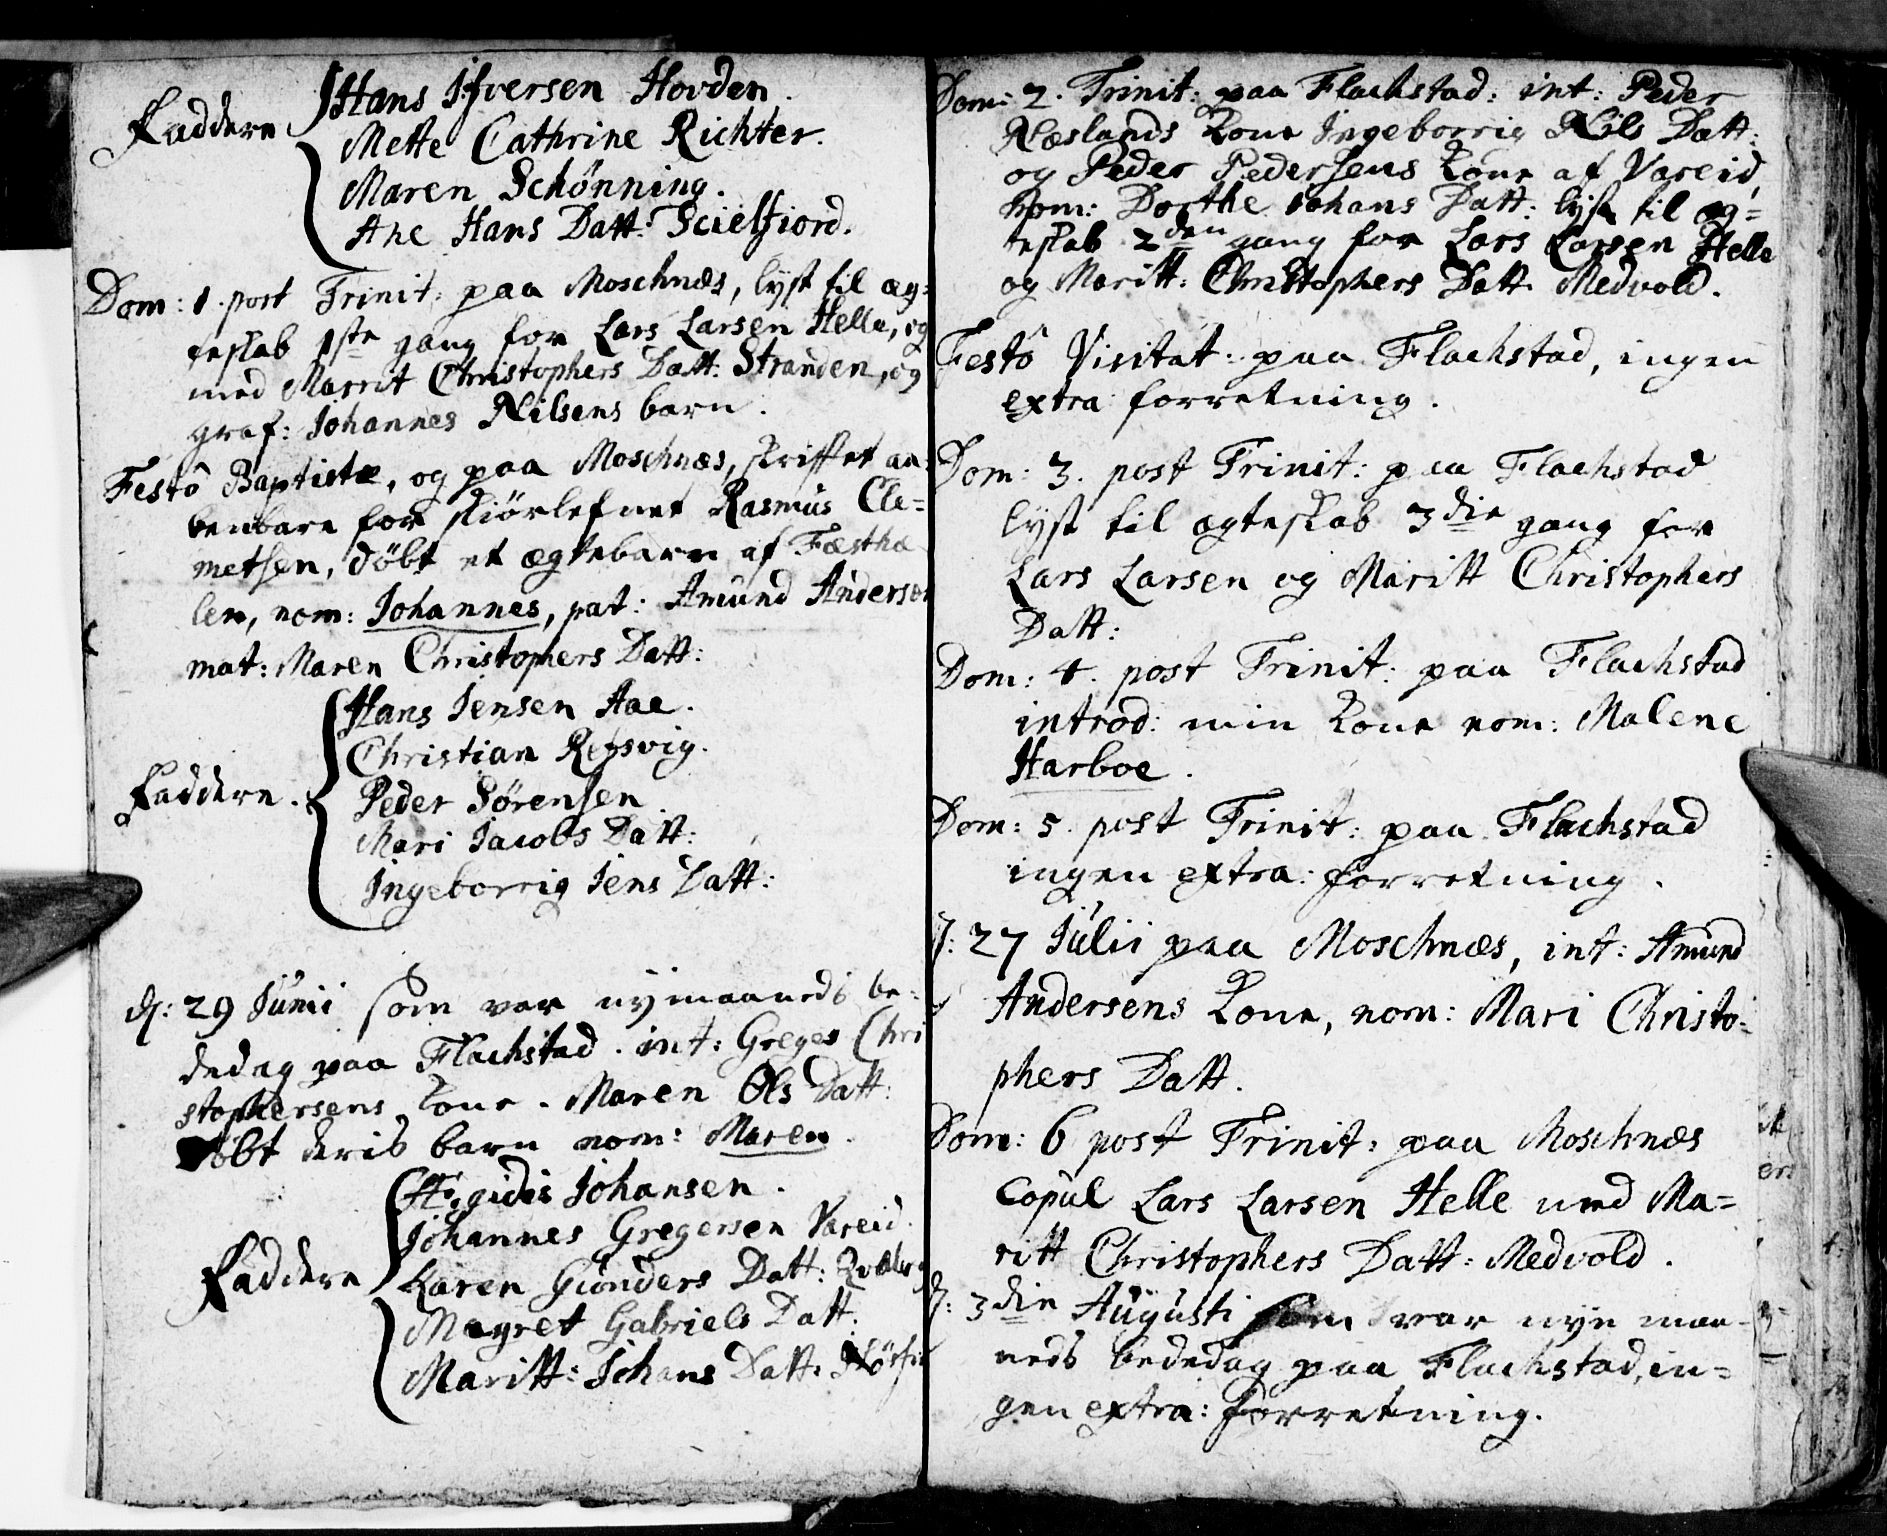 Faddere
Hans Ifversen Hovden.
Mette Cathrine Richter.
Maren Schønning.
Ane Hans Datt: Scielfiord.
Dom: 1. post Trinit: paa Moschnæs, lyst til æg-
teskab 1ste gang for Lars Larsen Helle, og
med Marrit Christophers Datt: Stranden, og
graf: Johannes Nilsens barn.
Festô Baptistæ, og paa Moschnæs, skriftet aa-
benbare for skiørlefnet Rasmus Cle-
metsen, døbt et ægtebarn af Festhæ
len, nom: Johannes, pat: Amund Andersen
mat: Maren Christophers Datt:
Faddere.
Hans Jensen Aae.
Christian Refsvig.
Peder Sørensen.
Mari Jacobs Datt:
Ingeborrig Jens Datt:
d: 29 Junii som var nymaaneds be-
dedag paa Flachstad. int: Greges Chri
stophersens kone. Maren Ols Datt:
døbt deris barn nom: Maren.
Faddere
Ægidis Johansen.
Johannes Gregersen Vareid.
Karen Giønders Datt:
Magret Gabriels Datt.
Maritt: Johans Datt:
Dom: 2. Trinit: paa Flachstad: int: Peder
Næslands kone Ingeborrig Nils Datt:
og Peder Pedersens kone af Vareid,
nom: Dorthe Johans Datt: lyst til æg-
teskab 2den gang for Lars Larsen Helle
og Maritt: Christophers Datt. Medvold.
Festô Visitat: paa Flachstad, ingen
extra forretning.
Dom: 3. post Trinit: paa Flachstad
lyst til ægteskab 3die gang for
Lars Larsen og Maritt Christophers
Datt:
Dom: 4. post Trinit: paa Flachstad
introd: min kone nom: Malene
Harboe.
Dom: 5. post Trinit: paa Flachstad
ingen extra: forretning.
d: 27 Julii paa Moschnæs, int: Amund
Andersens kone, nom: Mari Christo-
phers Datt.
Dom: 6 post Trinit: paa Moschnæs
Copul Lars Larsen Helle med Ma-
ritt Christophers Datt: Medvold.
d: 3die Augusti som var nye maa-
neds bededag paa Flachstad, in-
gen extra: forretning.